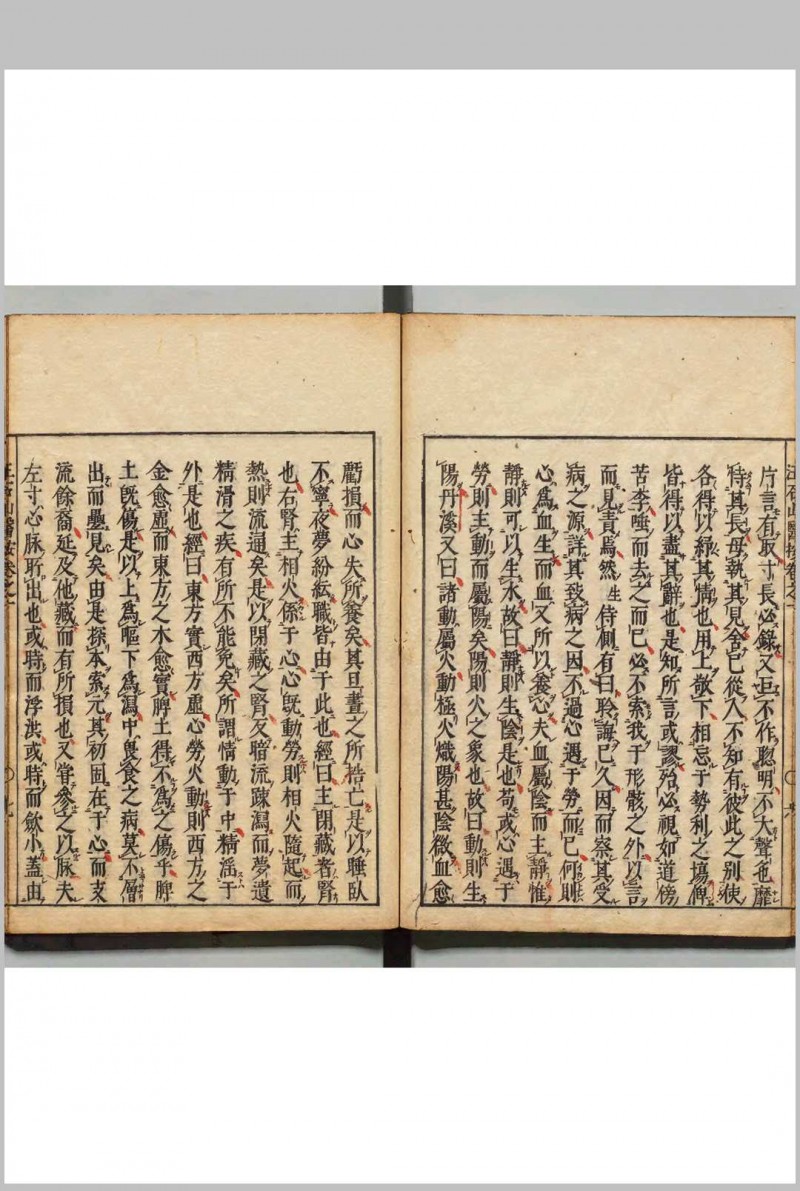 片言有取寸長必錄又且不作聰明不大聲色靡
恃其長毋執其見舍已從人不知有彼此之別使
各得以紓其情也用上敬下相忘于勢利之塲俾
皆得以盡其辭也是知所言或謬殆必視如道傍
苦李唾而去之而已必不索我于形骸之外以言
而見責焉然生侍側有日聆誨已久因而察其受
病之源詳其致病之因不過心遇于勞而已何則
心爲血而血又所以養心夫血屬陰而主靜惟
靜則可以生水故曰靜則生陰是也苟或心遇于
勞則主動而屬陽矣陽則火之象也故曰動則生
陽丹溪又曰諸動屬火動極火熾陽甚陰微血愈
虧損而心失所養矣其旦晝之所梏亡是以睡臥
不寧夜夢紛紜職皆由于此也經曰主閉藏者腎
也右腎主相火係于心心既動勞則相火隨起而
熱則流通矣是以閉藏之腎反暗流疎瀉而夢遺
精滑之疾有所不能免矣所謂情動于中精滛于
外是也經曰東方實西方虛心勞火動則西方之
金愈虛而東方之木愈實脾土得不爲之傷乎脾
土既傷是以上爲嘔下爲瀉中臭食之病莫不層
出而疊見矣由是探本索元其初固在于心而支
流餘裔延及他藏而有所損也又嘗參之以脉夫
左寸心脉所出也或時而浮洪或時而歛小蓋由
汪石山醫按卷之一
七